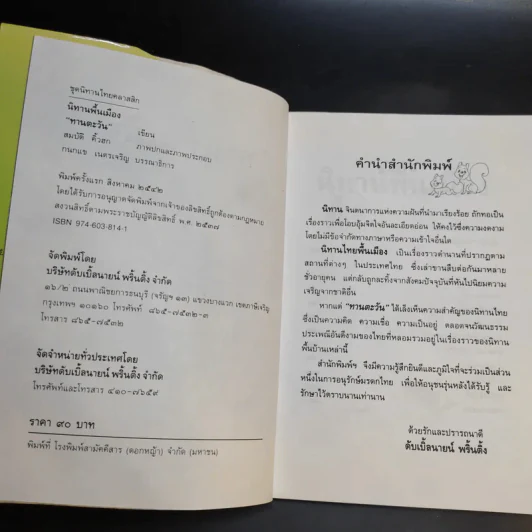 ชุดนิทานไทยคลาสสิก
นิทานพื้นเมือง
"ทานตะวัน" เขียน
สมบัติ คิ้วฮก ภาพปกและภาพประกอบ
กนกแข เนตรเจริญ บรรณาธิการ
พิมพ์ครั้งแรก สิงหาคม ๒๕๔๒
โดยได้รับการอนุญาตจัดพิมพ์จากเจ้าของลิขสิทธิ์ถูกต้องตามกฎหมาย
สงวนสิทธิ์ตามพระราชบัญญัติลิขสิทธิ์ พ.ศ. ๒๕๓๗
ISBN 974-603-814-1
จัดพิมพ์โดย
บริษัทดับเบิ้ลนายน์ พริ้นติ้ง จำกัด
๑๖/๒ ถนนพาณิชยการธนบุรี (จรัญฯ ๑๓) แขวงบางแวก เขตภาษีเจริญ
กรุงเทพฯ ๑๐๑๖๐ โทรศัพท์ ๘๖๕-๗๕๓๒-๓
โทรสาร ๘๖๕-๗๕๓๒
จัดจำหน่ายทั่วประเทศโดย
บริษัทดับเบิ้ลนายน์ พริ้นติ้ง จำกัด
โทรศัพท์และโทรสาร ๔๑๐-๗๖๕๙
ราคา ๙๐ บาท
พิมพ์ที่ โรงพิมพ์สามัคคีสาร (ดอกหญ้า) จำกัด (มหาชน)
คำนำสำนักพิมพ์
นิทาน จินตนาการแห่งความฝันที่นำมาเรียงร้อย ถักทอเป็น
เรื่องราวเพื่อโอบอุ้มจิตใจอันละเอียดอ่อน ให้คงไว้ซึ่งความงดงาม
โดยไม่มีข้อจำกัดทางภาษาหรือความเข้าใจอื่นใด
นิทานไทยพื้นเมือง เป็นเรื่องราวตำนานที่ปรากฏตาม
สถานที่ต่างๆ ในประเทศไทย ซึ่งเล่าขานสืบต่อกันมาหลาย
ชั่วอายุคน แต่กลับถูกละทิ้งจากสังคมปัจจุบันที่หันไปนิยมความ
เจริญจากชาติอื่น
หากแต่ "ทานตะวัน" ได้เล็งเห็นความสำคัญของนิทานไทย
ซึ่งเป็นความคิด ความเชื่อ ความเป็นอยู่ ตลอดจนวัฒนธรรม
ประเพณีอันดีงามของไทยที่หลอมรวมอยู่ในเรื่องราวของนิทาน
พื้นบ้านเหล่านี้
สำนักพิมพ์ฯ จึงมีความรู้สึกยินดีและภูมิใจที่จะร่วมเป็นส่วน
หนึ่งในการอนุรักษ์มรดกไทย เพื่อให้อนุชนรุ่นหลังได้รับรู้ และ
รักษาไว้ตราบนานเท่านาน
ด้วยรักและปรารถนาดี
ดับเบิ้ลนายน์ พริ้นติ้ง